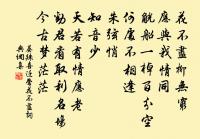 花不盡柳無窮
應與我情同
觥船一棹百分空
何處不相逢
朱弦悄
知音少
天若有情應老
勸君看取利名場
今古夢茫茫
晏殊喜迁鶯花不盡詞
典詞集